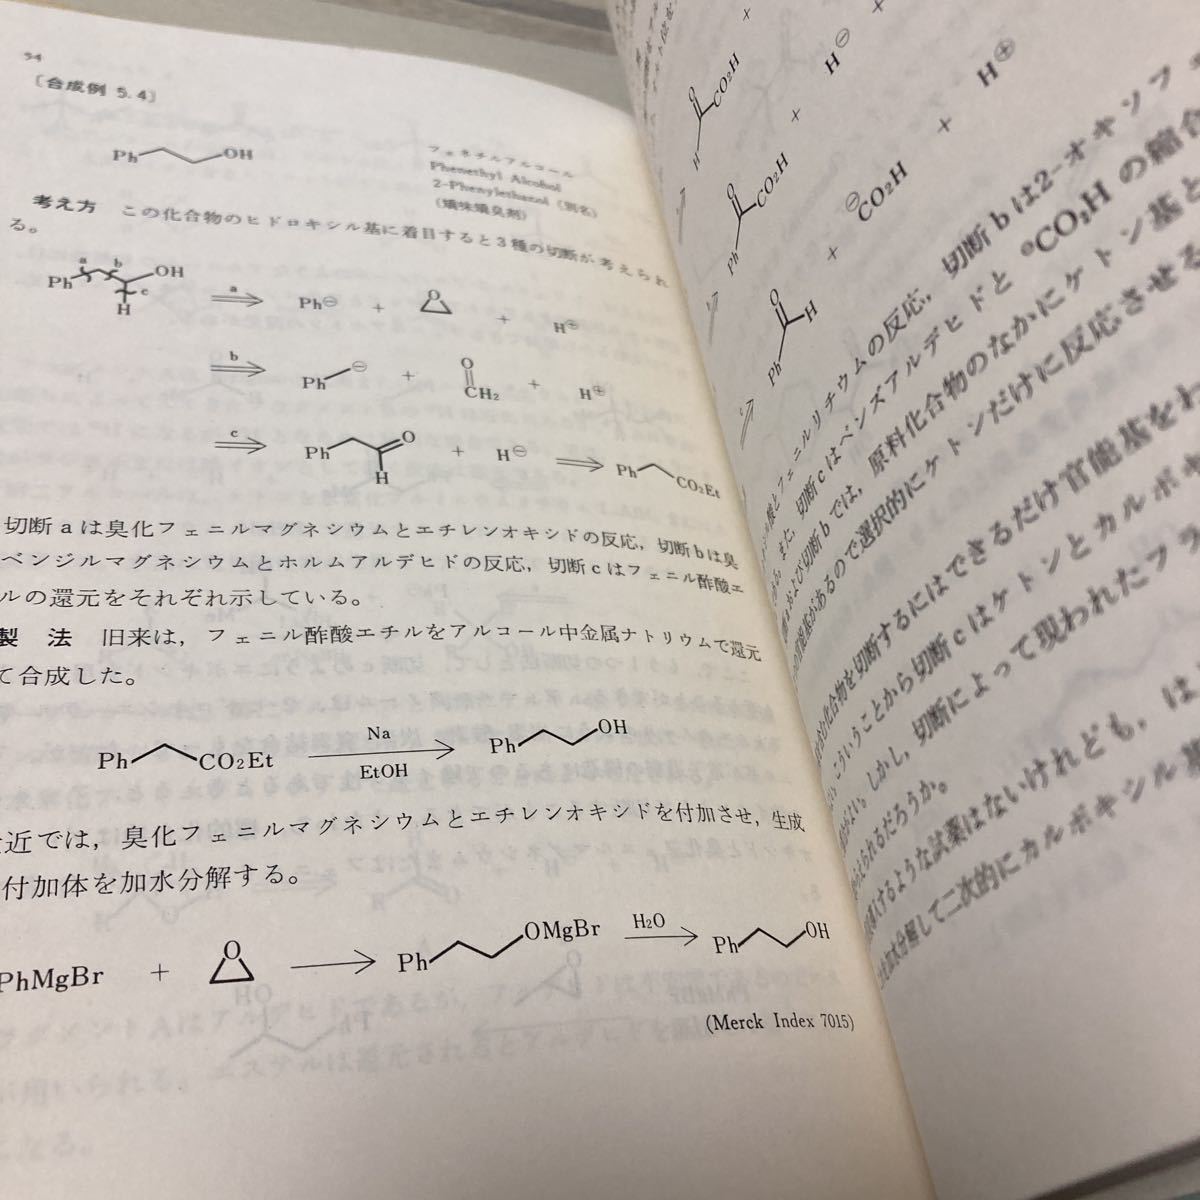 94
〔合成例 5.4〕
Ph OH
フェネチルアルコール
Phenethyl Alcohol
2-Phenylethanol (別名)
(矯味矯臭剤)
考え方 この化合物のヒドロキシル基に着目すると3種の切断が考えられ
る。
Ph a b OH c H
a Ph⊖ + O + H⊕
b Ph ⊖ + O CH2 + H⊕
c Ph O H + H⊖ Ph CO2Et
切断aは臭化フェニルマグネシウムとエチレンオキシドの反応, 切断bは臭
ベンジルマグネシウムとホルムアルデヒドの反応, 切断cはフェニル酢酸エ
ルの還元をそれぞれ示している。
製法 旧来は, フェニル酢酸エチルをアルコール中金属ナトリウムで還元
て合成した。
Ph CO2Et Na EtOH Ph OH
近では, 臭化フェニルマグネシウムとエチレンオキシドを付加させ, 生成
付加体を加水分解する。
PhMgBr + O Ph OMgBr H2O Ph OH
(Merck Index 7015)
H O CO2H + H⊖ +
Ph O CO2H + H⊕
Ph O H + ⊖CO2H + H⊕
フェニルリチウムの反応, 切断bは2-オキソフェ
また, 切断cはベンズアルデヒドと ⊖CO2Hの縮合
および切断bでは, 原料化合物のなかにケトン基と
官能基があるので選択的にケトンだけに反応させる
化合物を切断するにはできるだけ官能基をわ
こういうことから切断cはケトンとカルボキ
しかし, 切断によって現われたフラ
られるだろうか。
するような試薬はないけれども, は
加水分解して二次的にカルボキシル基